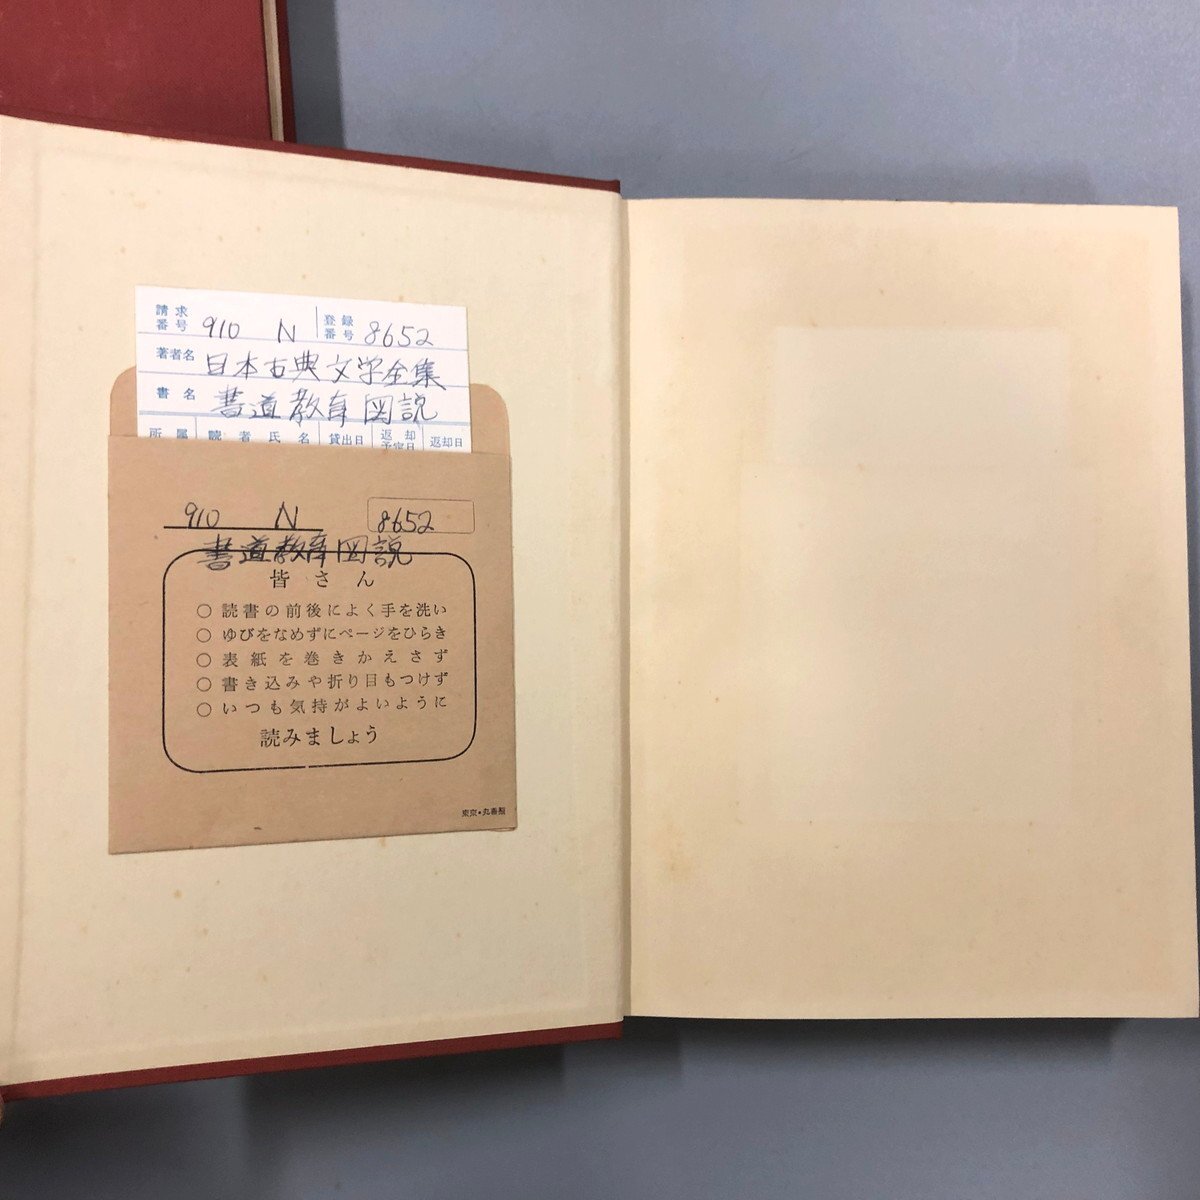 請求番号 910 N 登録番号 8652
著者名 日本古典文学全集
書名 書道教育図説
所属 読者氏名 貸出日 返却予定日 返却日
910 N 8652
書道教育図説
皆さん
○ 読書の前後によく手を洗い
○ ゆびをなめずにページをひらき
○ 表紙を巻きかえさず
○ 書き込みや折り目もつけず
○ いつも気持がよいように
読みましょう
東京・丸善製